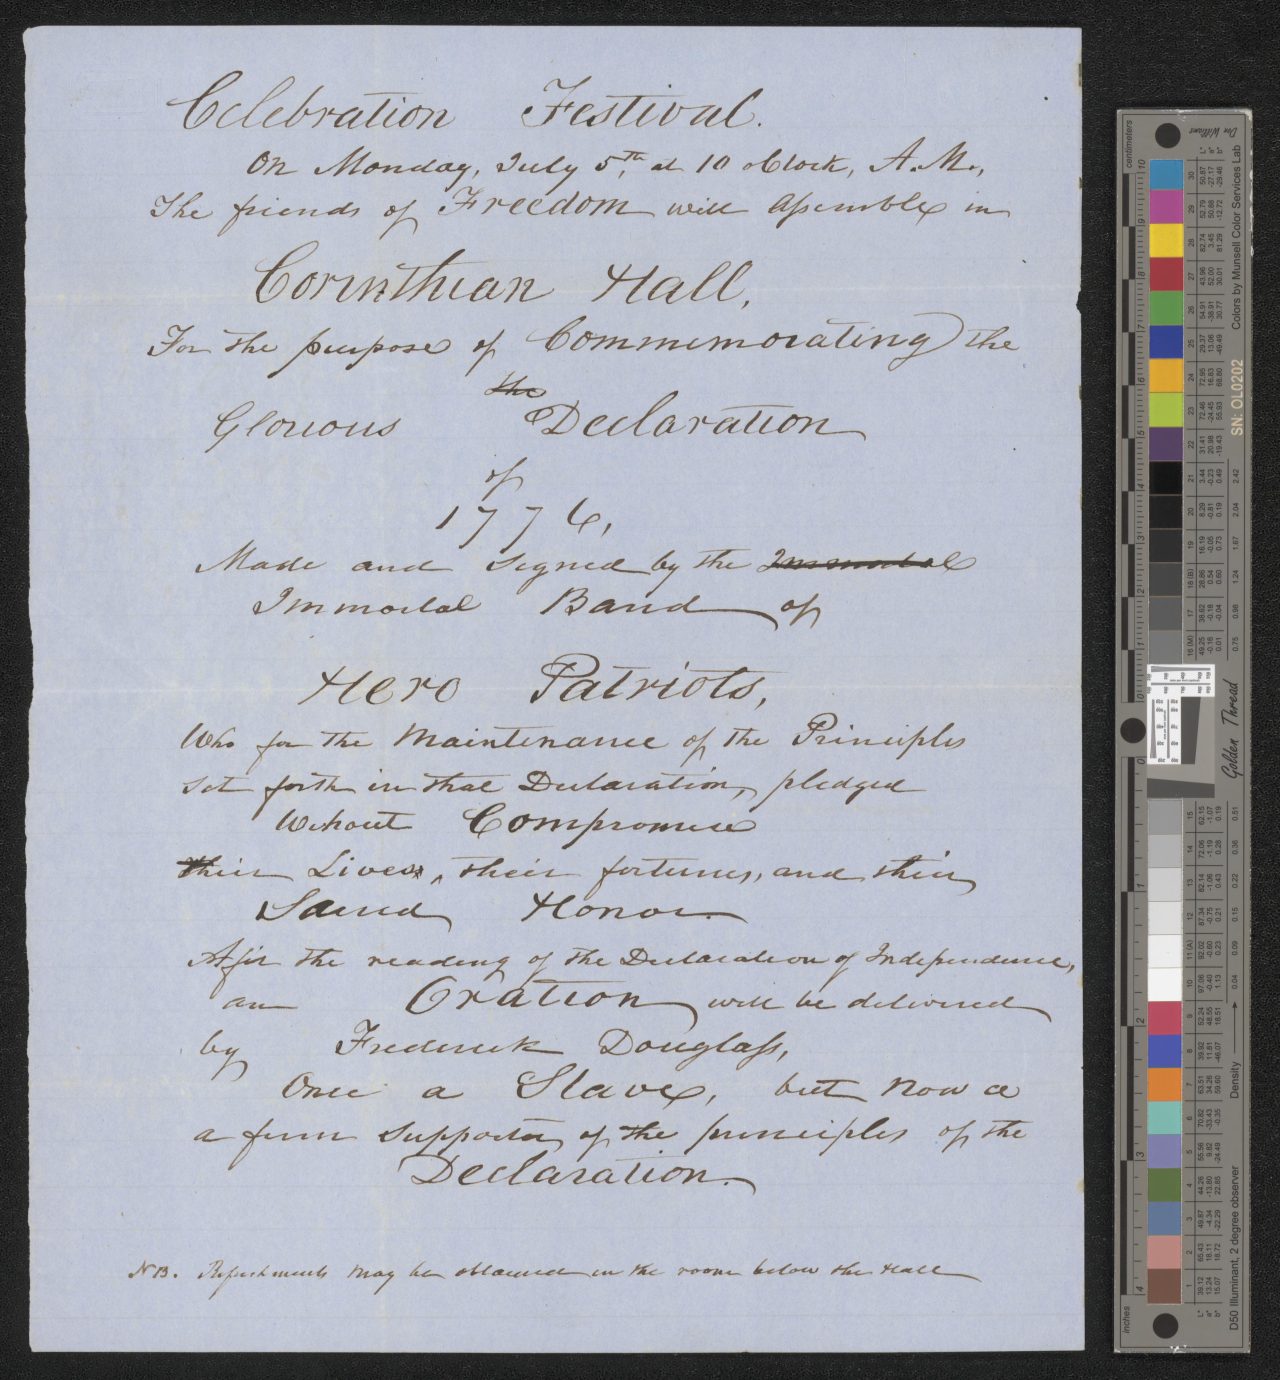 Celebration Festival.
On Monday, July 5th, at 10 oClock, A.M.,
The friends of Freedom will Assemble in
Corinthian Hall,
For the purpose of Commemorating the
the
Glorious Declaration
of
1776,
Made and Signed by the Immortal
Immortal Band of
Hero Patriots,
Who for the Maintenance of the Principles
set forth in that Declaration, pledged
Without Compromise
their Lives, their fortunes, and their
Sacred Honor.
After the reading of the Declaration of Independence,
an Oration will be delivered
by Frederick Douglass,
Once a Slave, but now a
a firm supporter of the principles of the
Declaration.
N.B. Refreshments may be obtained in the room below the Hall
centimeters
Don Williams
Colors by Munsell Color Services Lab
SN: OL0202
Golden Thread
Density
D50 Illuminant, 2 degree observer
inches